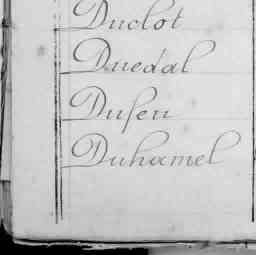 Duclot
Duedal
Dufeu
Duhamel